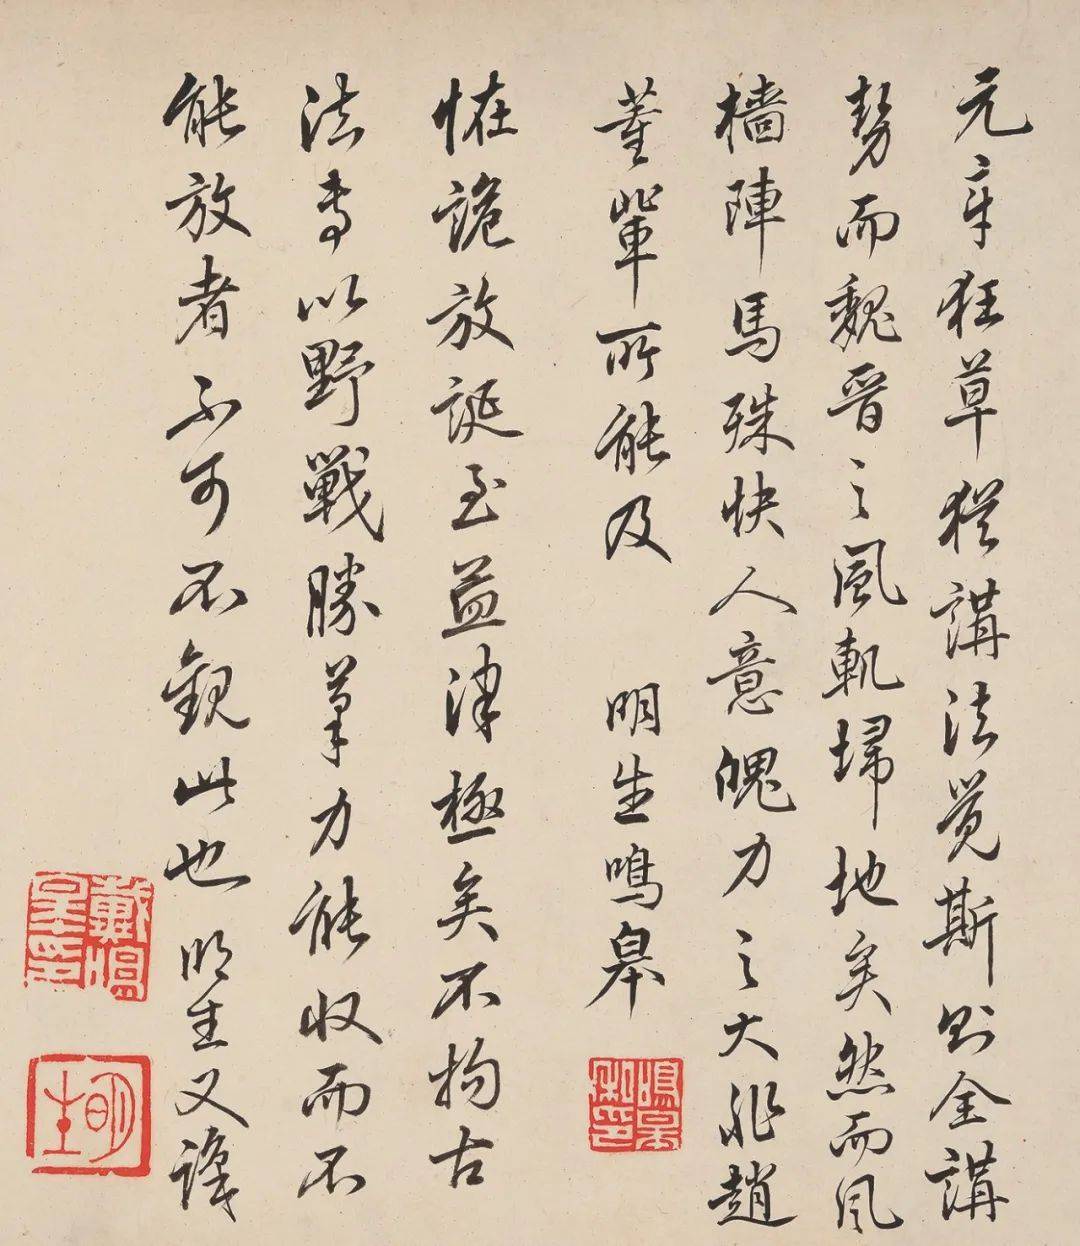 元章狂草猶講法覺斯則全講
勢而魏晉之風軌埽地矣然而風
檣陣馬殊快人意魄力之大非趙
董輩所能及 明生鳴皋
怪詭放誕至孟津極矣不拘古
法專以野戰勝筆力能收而不
能放者不可不觀此也 明生又識
鳴皋私印
戴熅皋印
明生